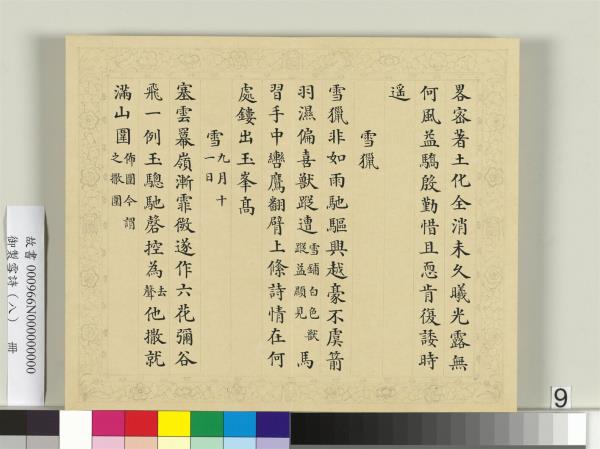 畧審著土化全消未久曦光露無
何風益驕殷勤惜且恧肯復諉時
遙
雪獵
雪獵非如雨馳驅興越豪不虞箭
羽濕偏喜獸蹤遭雪鋪白色獸蹤益顯見馬
習手中轡鷹翻臂上絛詩情在何
處鏤出玉峯髙
雪九月十一日
塞雲羃嶺漸霏微遂作六花彌谷
飛一例玉驄馳磬控為去聲他撒就
滿山圍佈圍今謂之撒圍
故書 000966N000000000
御製雪詩（八） 冊
9